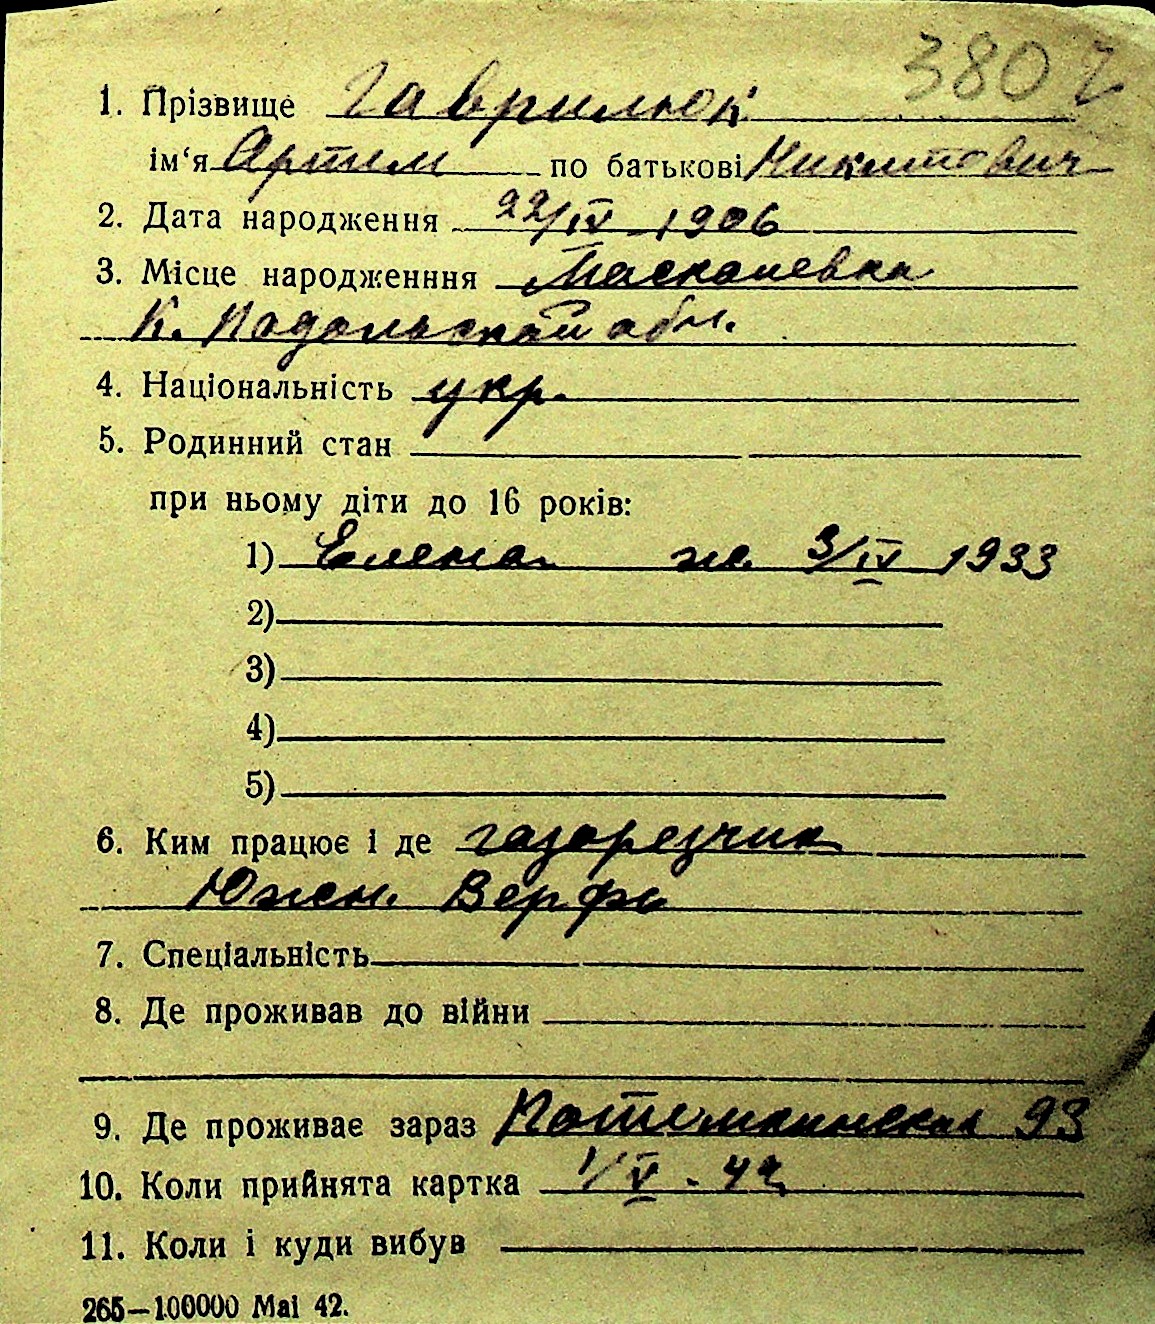 380
1. Прізвище Гаврилюк
ім‘я Артем по батькові Никитович
2. Дата народження 22/IV 1906
3. Місце народженння
К. Подольской обл.
4. Національність укр.
5. Родинний стан
при ньому діти до 16 років:
1) Елена ж. 3/IV 1933
2)
3)
4)
5)
6. Ким працює і де газорезчик
Южн. Верфь
7. Спеціальність
8. Де проживав до війни
9. Де проживає зараз Потемкинская 93
10. Коли прийнята картка 1/V - 42
11. Коли і куди вибув
265—100000 Mai 42.